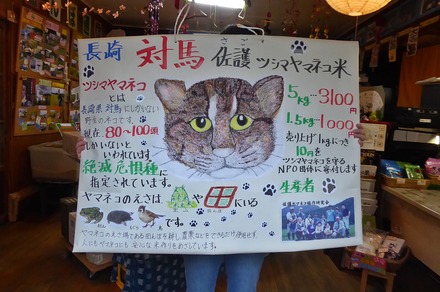 さご
長崎 対馬 佐護 ツシマヤマネコ米
ツシマヤマネコ
とは
長崎県対馬にしかいない
野生のネコです。
現在、80〜100頭
しかいないと
いわれています
絶滅危惧種に
指定されています。
ヤマネコのえさは
や田にいる
です。
ヤマネコのえさ場である田んぼを耕し、農薬などをできるだけ使用せず
人にもヤマネコにも安心な米作りをめざしています。
5kg…3100円
1.5kg…1000円
売り上げ1kgにつき
10円を
ツシマヤマネコを守る
NPO団体に寄付します
生産者